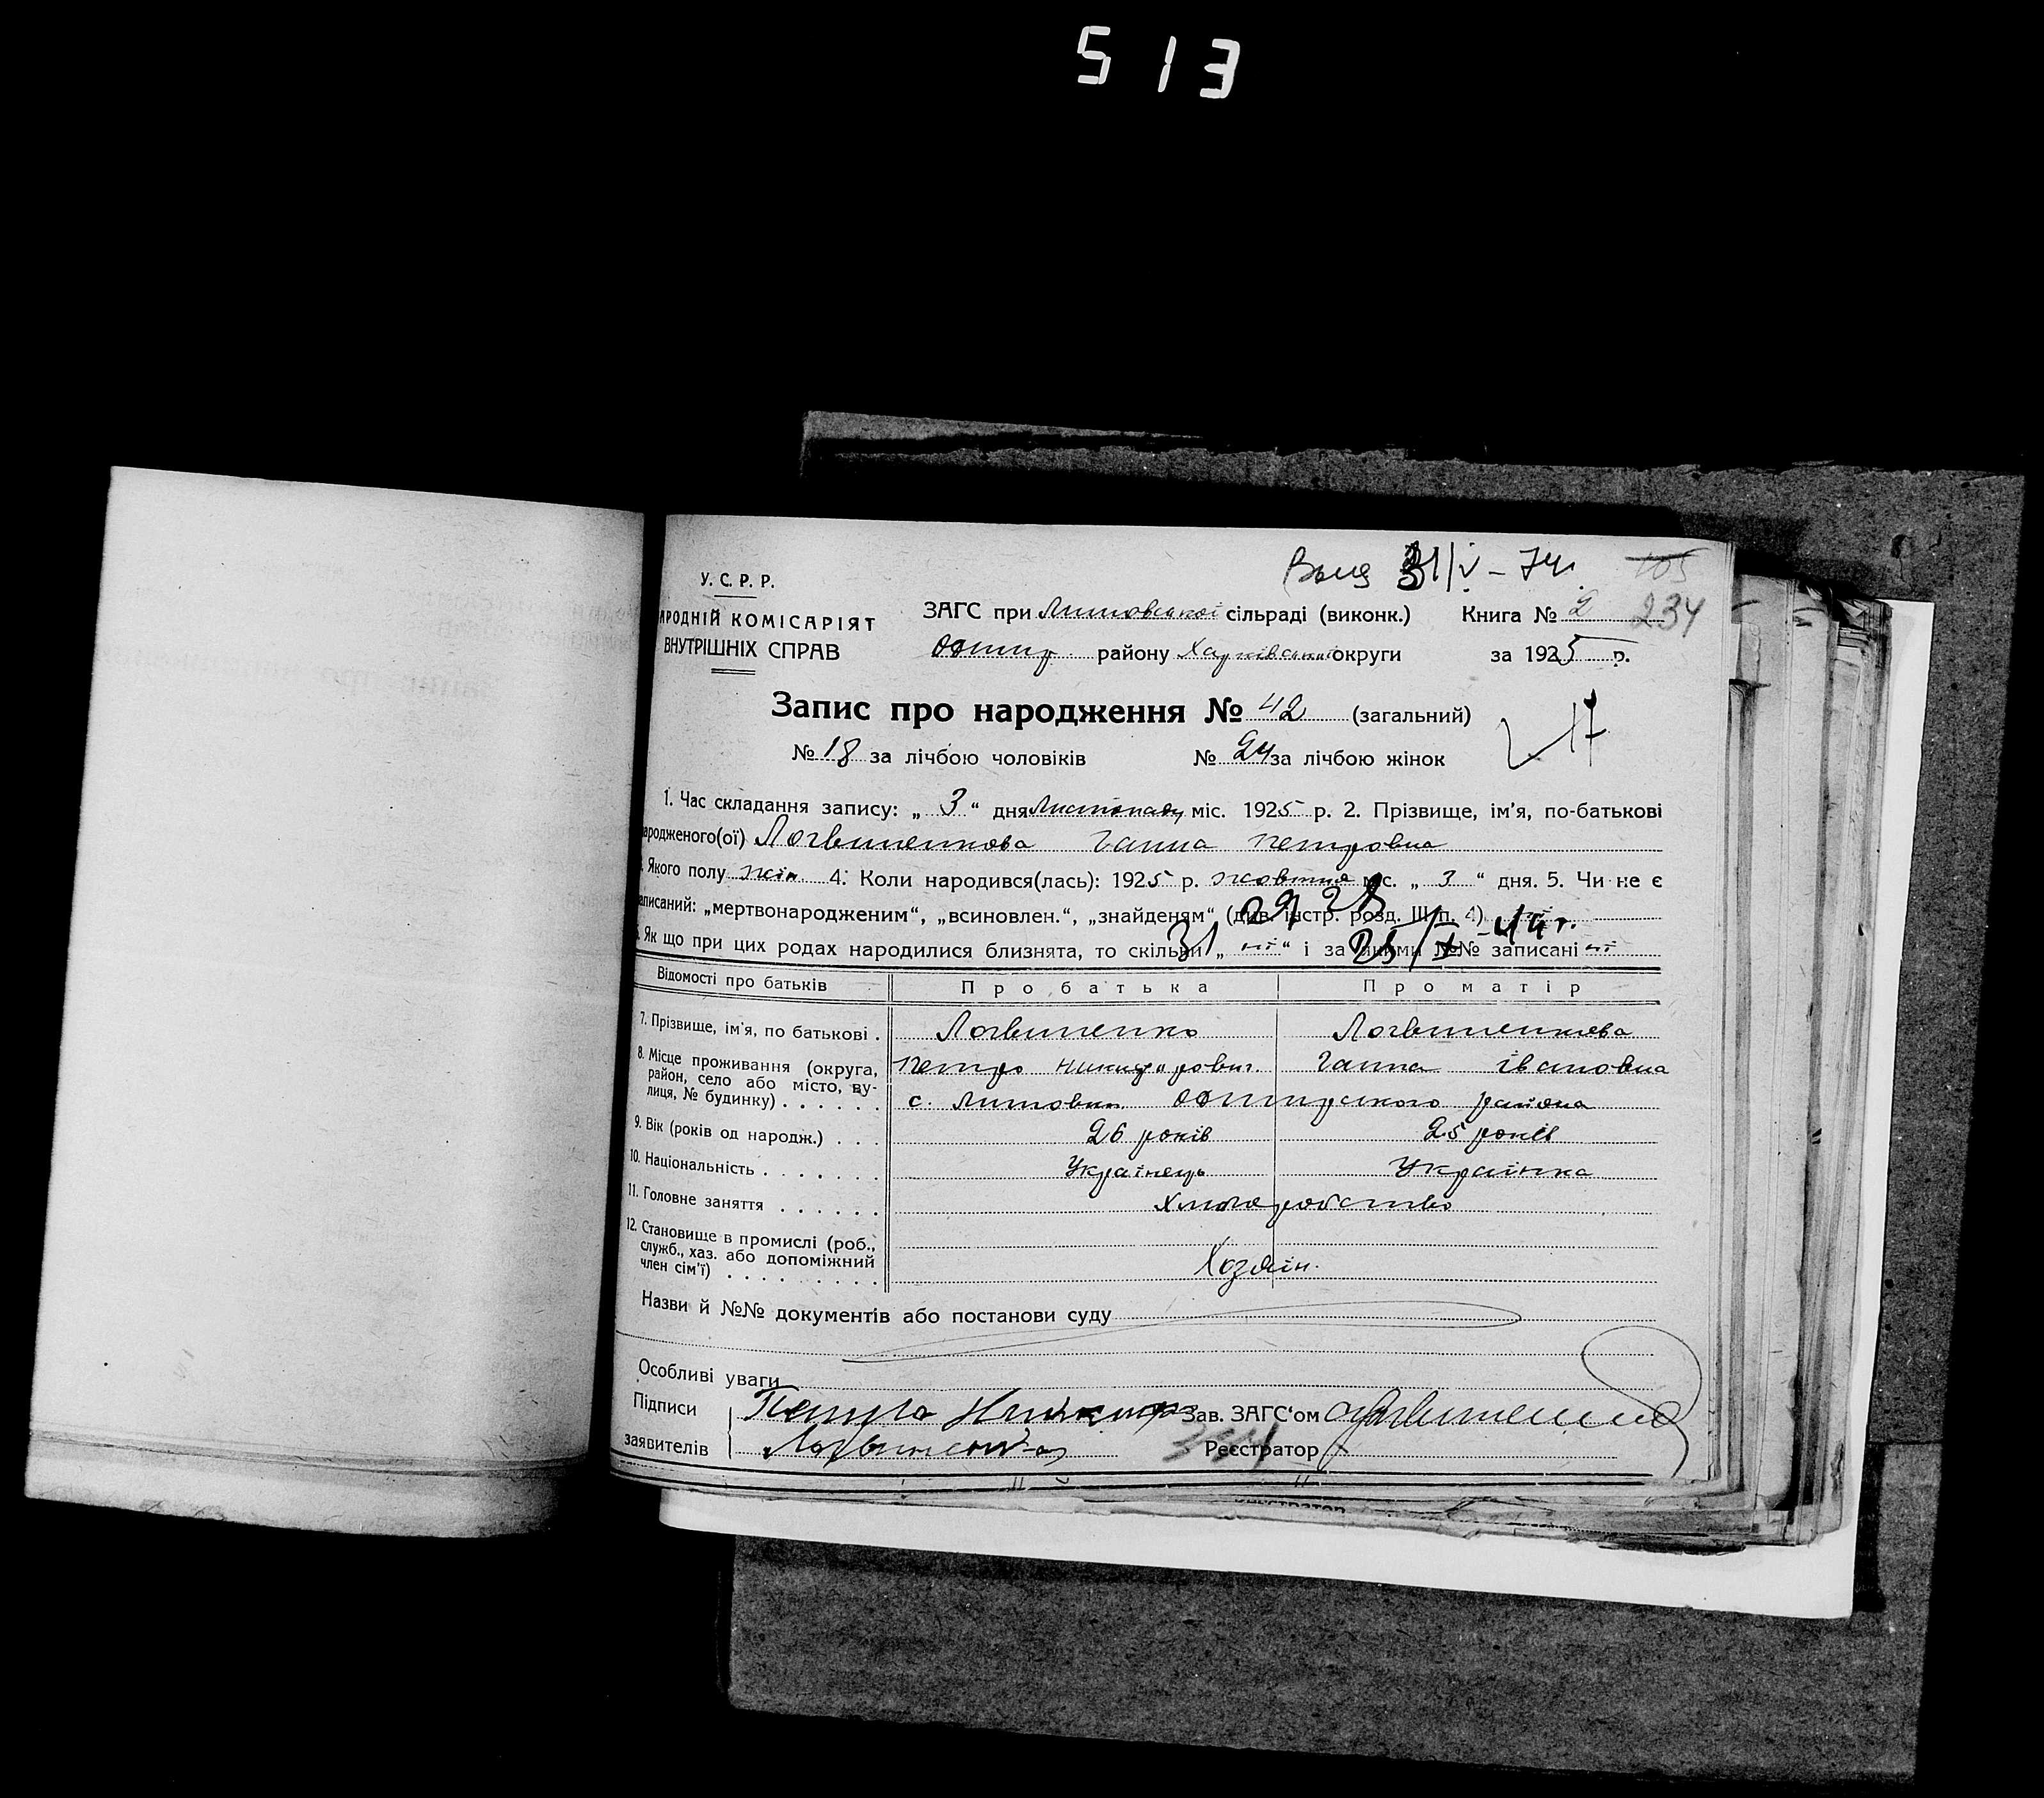 513
Выд 31/V – 74г.
105
У. С. Р. Р.
АРОДНІЙ КОМІСАРІЯТ
ВНУТРІШНІХ СПРАВ
ЗАГС при Литовської сільраді (виконк.) Книга № 2 234
району Харківської округи за 1925 р.
Запис про народження № 42 (загальний)
№ 18 за лічбою чоловіків № 24 за лічбою жінок
1. Час складання запису: „ 3 “ дня Листопаду міс. 1925 р. 2. Прізвище, ім'я, по-батькові
ародженого(ої) Логвиненкова Ганна Петровна
. Якого полу жін. 4. Коли народився(лась): 1925 р. жовтня міс. „ 3 “ дня. 5. Чи не є
аписаний: „мертвонародженим“, „всиновлен.“, „знайденям“ (див. інстр. розд. III п. 4)
. Як що при цих родах народилися близнята, то скільки „ ні “ і за якими №№ записані ні
Відомості про батьків Про батька Про матір
7. Прізвище, ім'я, по батькові . Логвиненко Логвиненкова
8. Місце проживання (округа, Петро Никифорович. Ганна Івановна
район, село або місто, ву-
лиця, № будинку) . . . . . . с. Литовки района
9. Вік (років од народж.) . . . 26 років 25 років
10. Національність . . . . . . Українець Українка
11. Головне заняття . . . . . . Хлиборобство
12. Становище в промислі (роб.,
служб., хаз. або допоміжний
член сім'ї) . . . . . . . . . Хозяїн.
Назви й №№ документів або постанови суду
Особливі уваги
Підписи Зав. ЗАГС'ом
заявителів Реєстратор